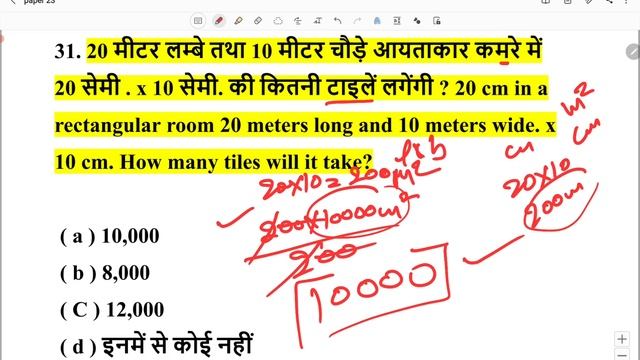 paper 23
31. 20 मीटर लम्बे तथा 10 मीटर चौड़े आयताकार कमरे में
20 सेमी . x 10 सेमी. की कितनी टाइलें लगेंगी ? 20 cm in a
rectangular room 20 meters long and 10 meters wide. x
10 cm. How many tiles will it take?
l x b
20x10 = 200m²
200x10000cm²
200
10000
m²
cm
cm
20x10
200cm
( a ) 10,000
( b ) 8,000
( C ) 12,000
( d ) इनमें से कोई नहीं